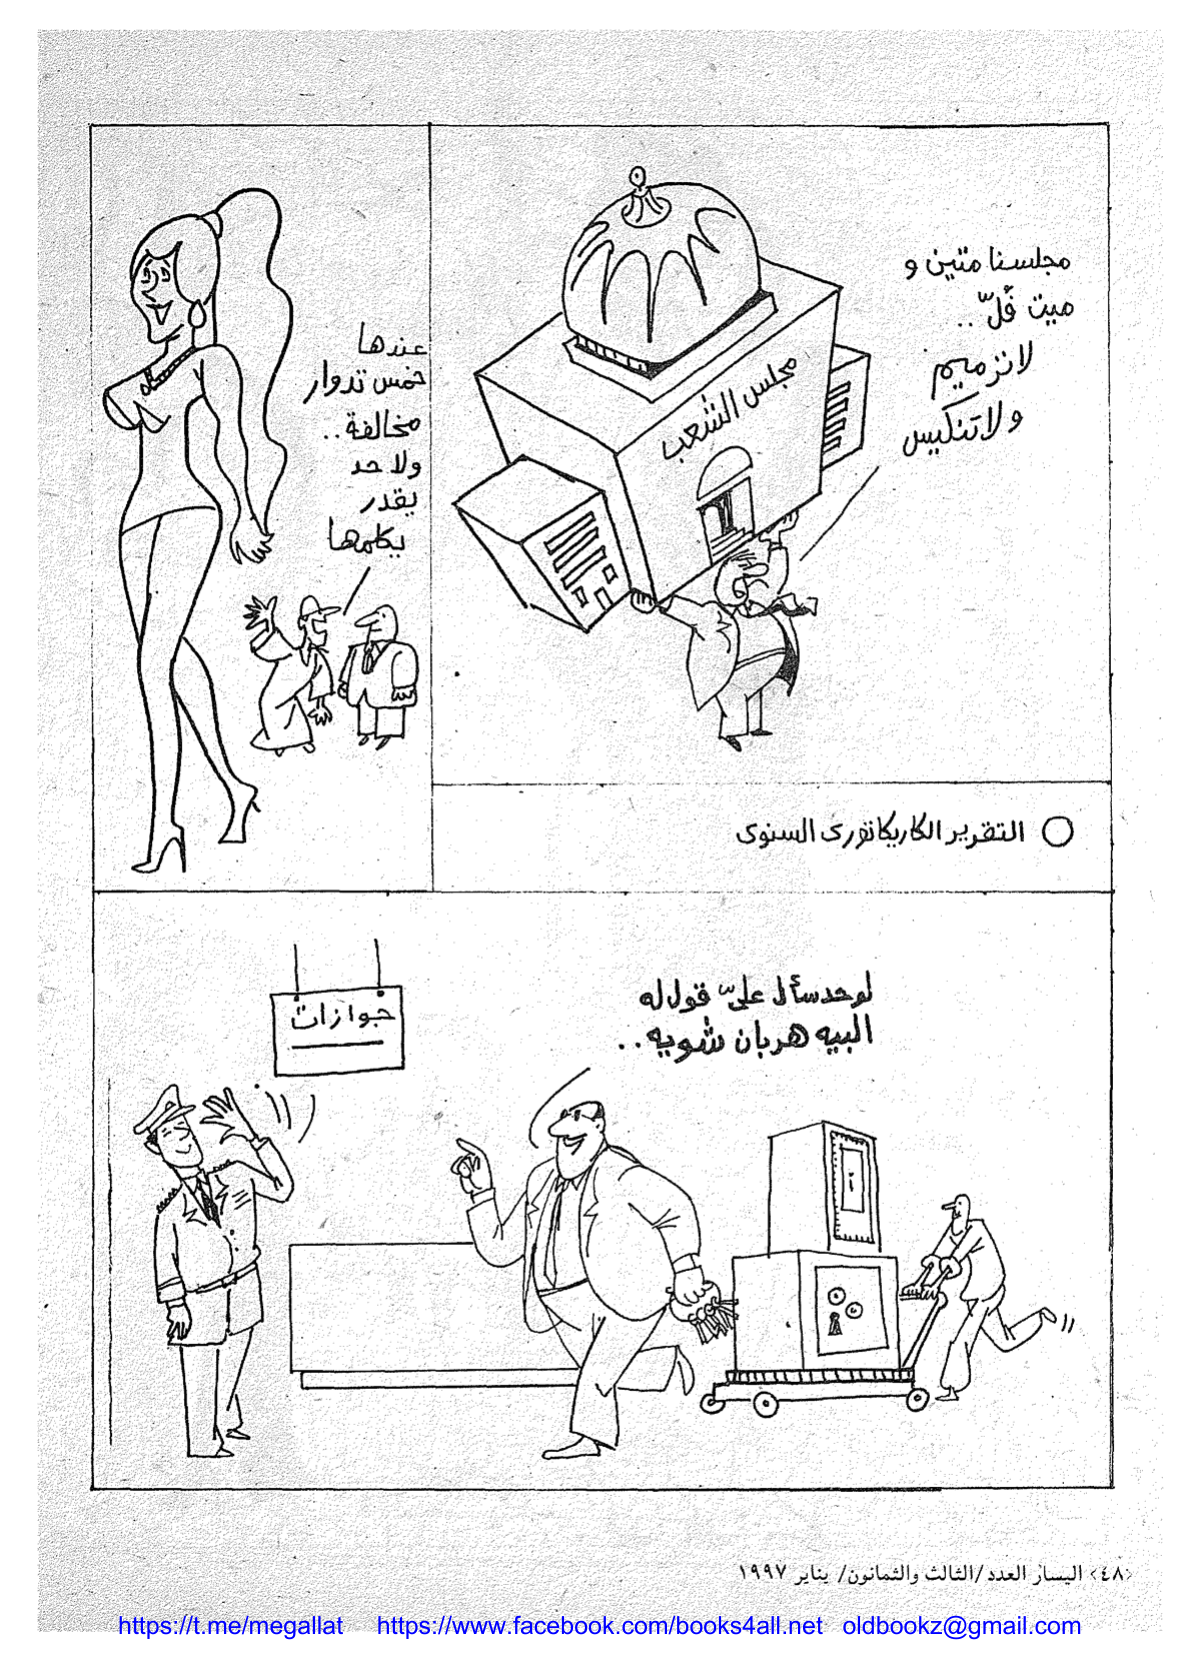 مجلسنا متين و
ميت فُلّ..
لا ترميم
ولا تنكيس
مجلس الشعب
عندها
خمس تدوار
مخالفة..
ولا حد
يقدر
يكلمها
التقرير الكاريكاتورى السنوى
لو حد سأل علىّ قول له
البيه هربان شويه..
جوازات
أ
<٤٨> اليسار العدد/الثالث والثمانون/ يناير ١٩٩٧
https://t.me/megallat https://www.facebook.com/books4all.net oldbookz@gmail.com